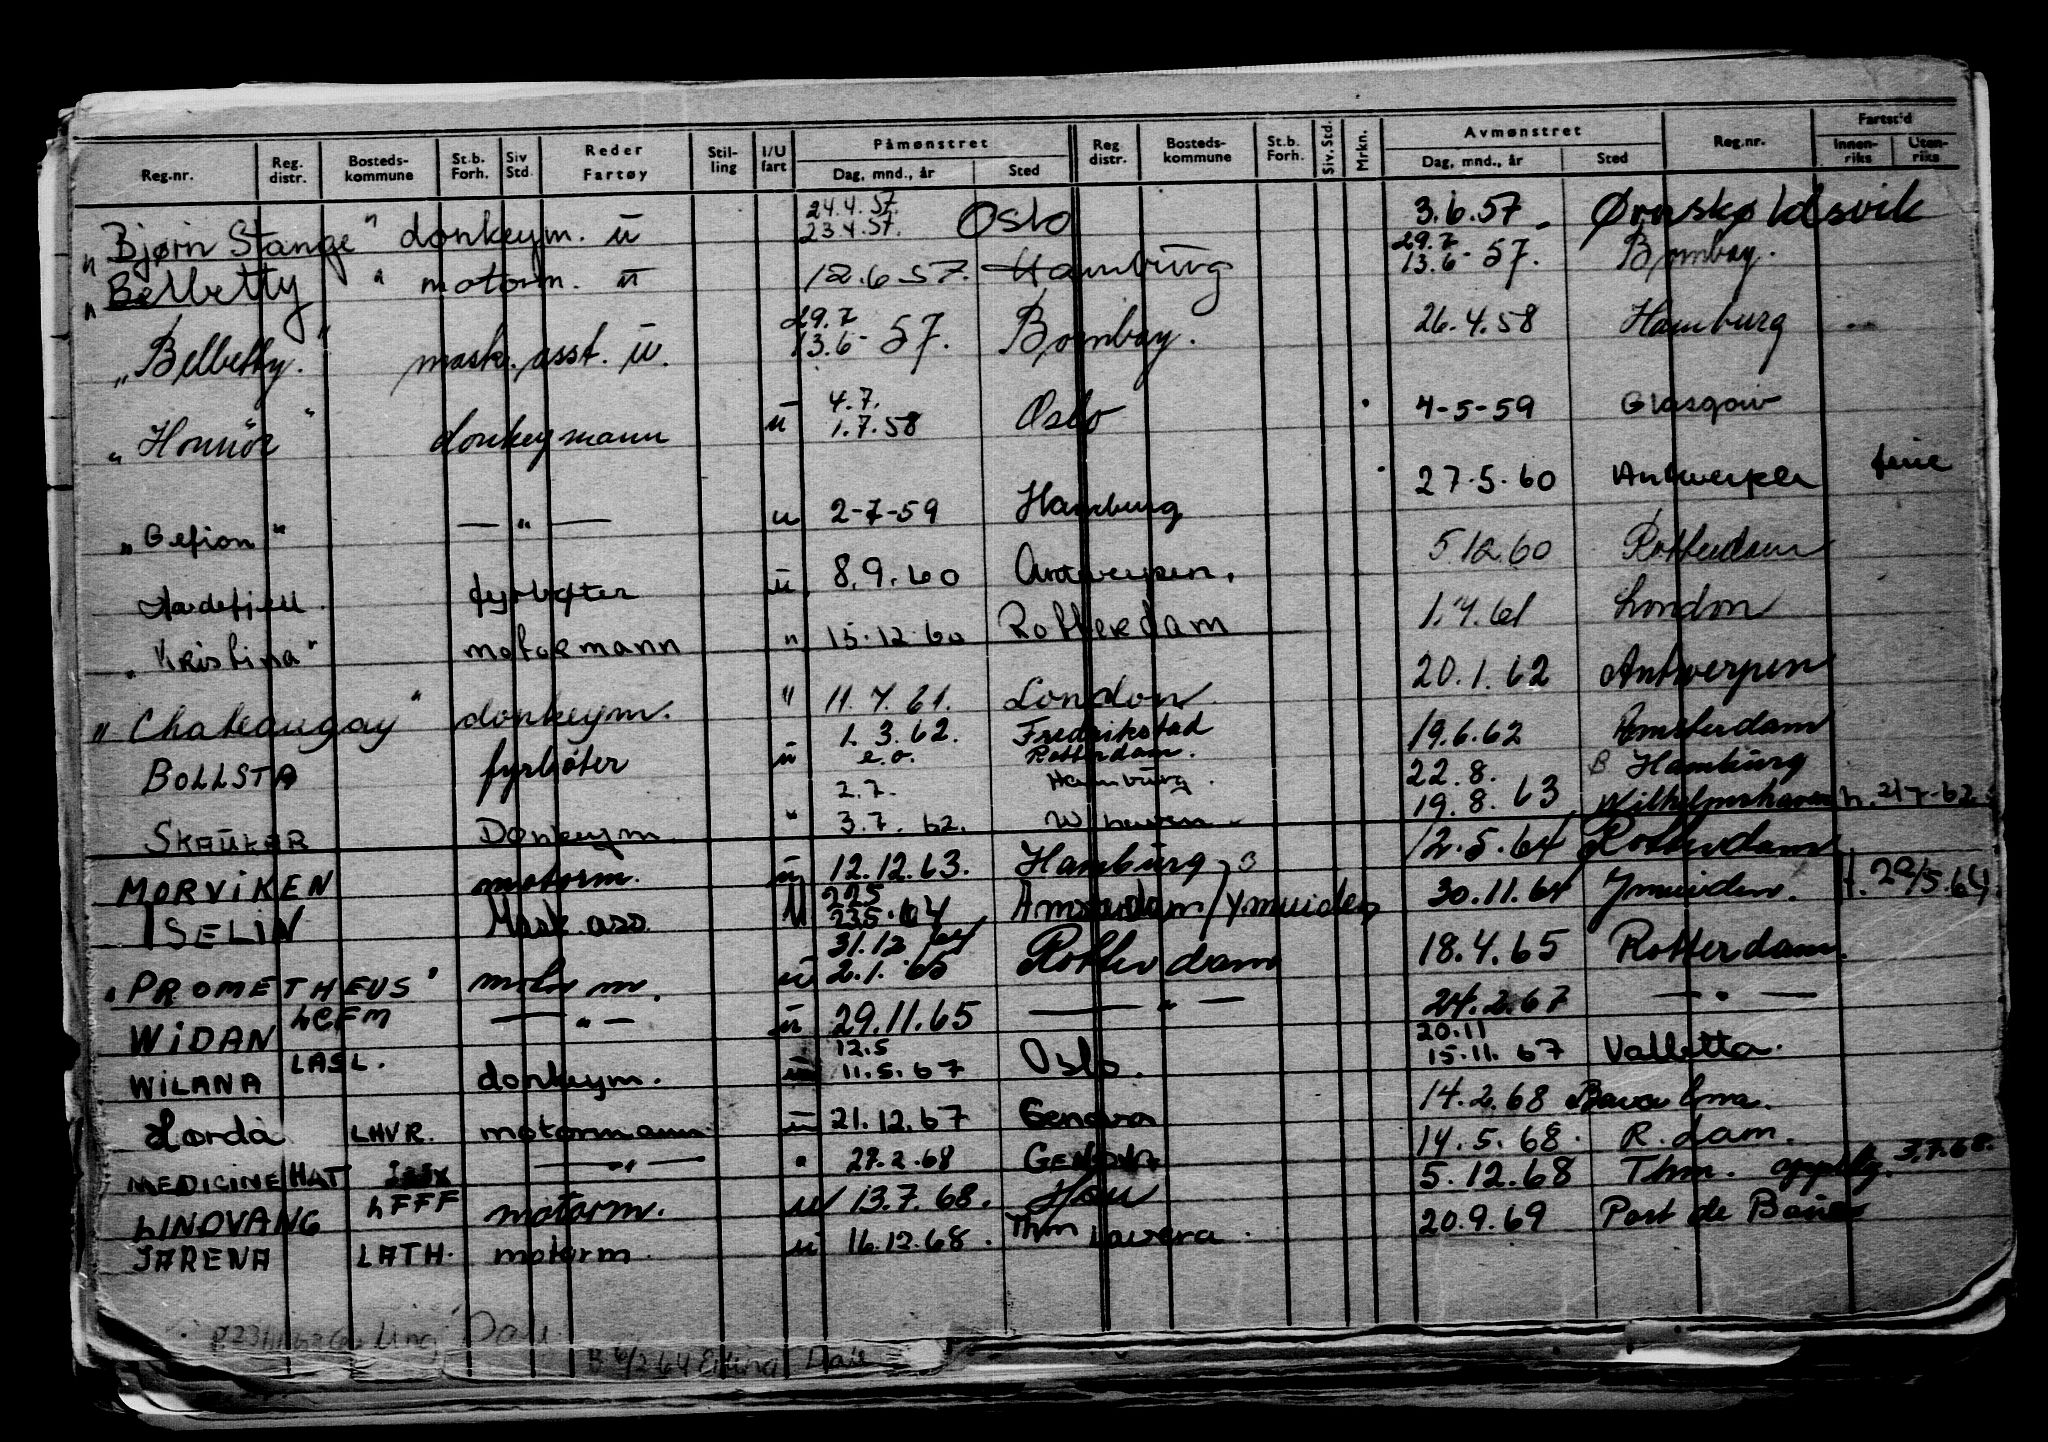 Reg.nr. Reg. distr. Bosteds- kommune St.b. Forh. Siv Std. Reder Fartøy Stil- ling I/U fart Påmønstret Dag, mnd., år Sted Reg distr. Bosteds- kommune St.b. Forh. Siv. Std. Mrkn. Avmønstret Dag, mnd., år Sted Reg.nr. Fartstid Innen- riks Uten- riks
"Bjørn Stange" donkeym. u 24.4.57. 23.4.57. Oslo 3.6.57 Ørnskøldsvik
"Belbetty" motorm. u 12.6.57. Hamburg 29.7 13.6-57. Bombay.
"Belbetty." mask. asst. u. 29.7 13.6-57. Bombay. 26.4.58 Hamburg
"Honnør" donkeymann u 4.7. 1.7.58 Oslo 4-5-59 Glasgow
"Gefion" — " — u 2-7-59 Hamburg 27.5.60 Antwerpen ferie
fyrbøter u 8.9.60 Antwerpen. 5.12.60 Rotterdam
"Kristina" motormann " 15.12.60 Rotterdam 1.7.61 London
"Chateaugay" donkeym. " 11.7.61. London 20.1.62 Antwerpen
BOLLSTA fyrbøter u 1.3.62. e.o. Fredrikstad Rotterdam. 19.6.62 Amsterdam
SKAUKAR Donkeym. " 2.7. 3.7.62. Hamburg. W haven 22.8. 19.8.63 B Hamburg Wilhelmshaven
MORVIKEN motorm. u 12.12.63. Hamburg, B 12.5.64 Rotterdam
ISELIN Mask. ass. U 22.5 23.5.64 Amsterdam/Ymuiden 30.11.64 Ymuiden.
"PROMETHEUS" motorm. u 31.12.64 2.1.65 Rotterdam 18.4.65 Rotterdam.
WIDAN LCFM — " — u 29.11.65 — " — 24.2.67 — " —
WILANA LASL. donkeym. u 12.5 11.5.67 Oslo. 20.11 15.11.67 Valletta.
Horda LHVR. motormann u 21.12.67 Genova 14.2.68
MEDICINE HAT — " — " 27.2.68 GENOVA 14.5.68. R.dam.
LINDVANG LFFF motorm. u 13.7.68. 5.12.68 Thm. 3.7.68.
JARENA LATH. motorm. u 16.12.68. Thm Lavera. 20.9.69 Port de